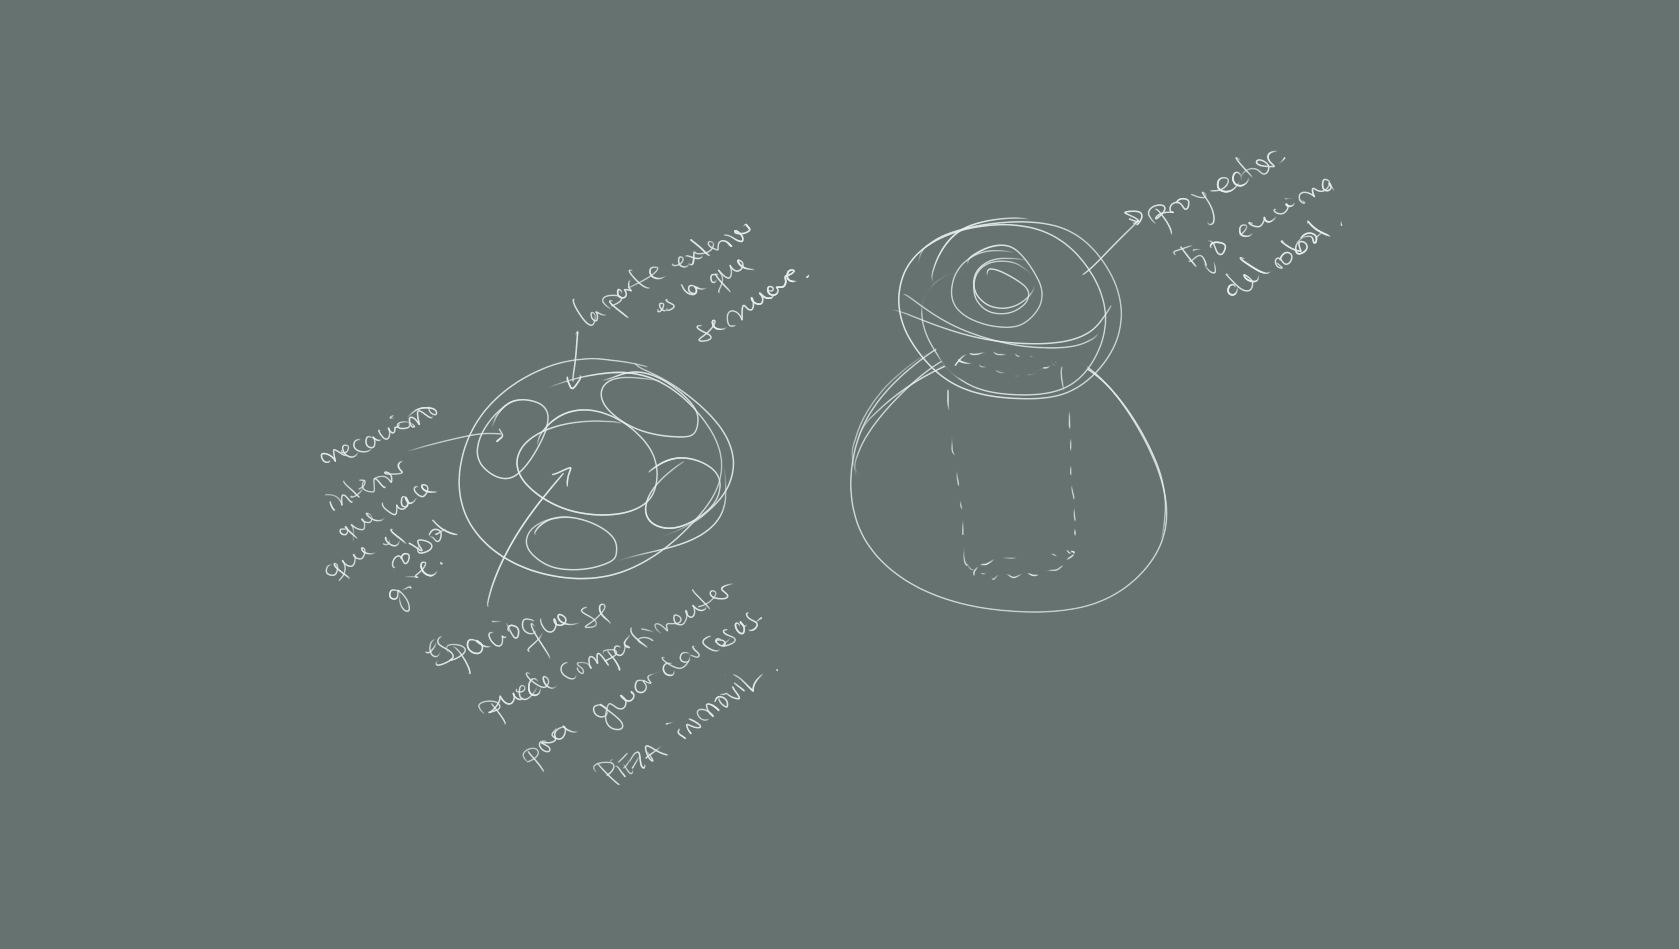 la parte exterior
es la que
se mueve.
mecanismo
interior
que hace
que el
robot
gire.
espacio que se
puede compartimentar
para guardar cosas.
PIEZA inmovil.
proyector.
fijo encima
del robot.